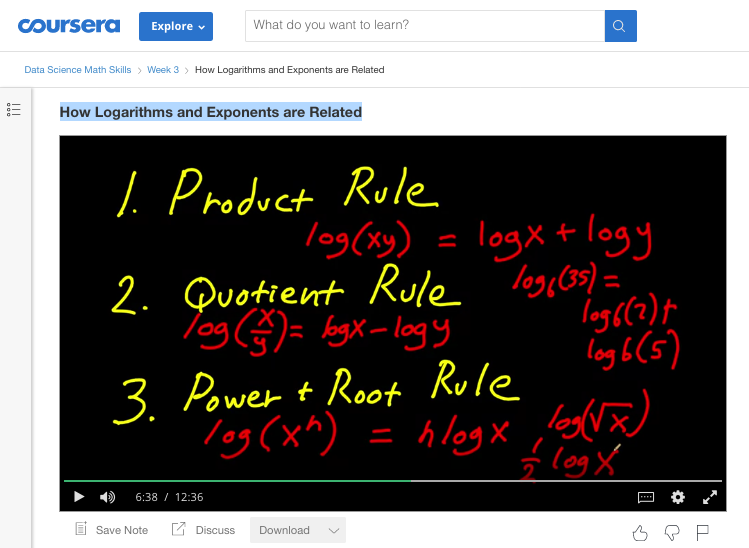 coursera Explore What do you want to learn?
Data Science Math Skills > Week 3 > How Logarithms and Exponents are Related
How Logarithms and Exponents are Related
1. Product Rule
log(xy) = logx + logy
2. Quotient Rule
log6(35) =
log(x/y) = logx - logy
log6(7) +
log6(5)
3. Power + Root Rule
log(x^n) = n log x
log(√x)
1/2 log x
6:38 / 12:36
Save Note Discuss Download